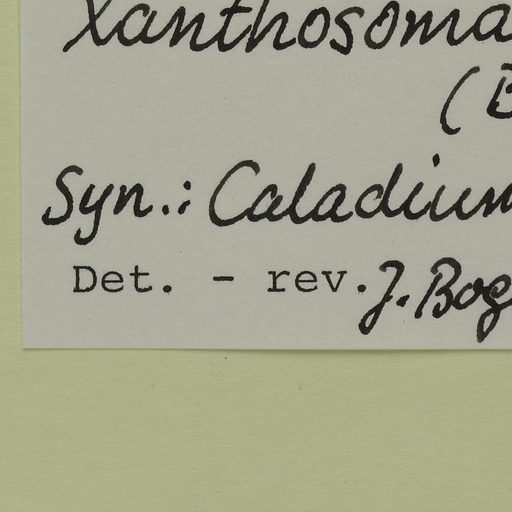 Xanthosoma
(B
Syn.: Caladium
Det. - rev. J. Bog